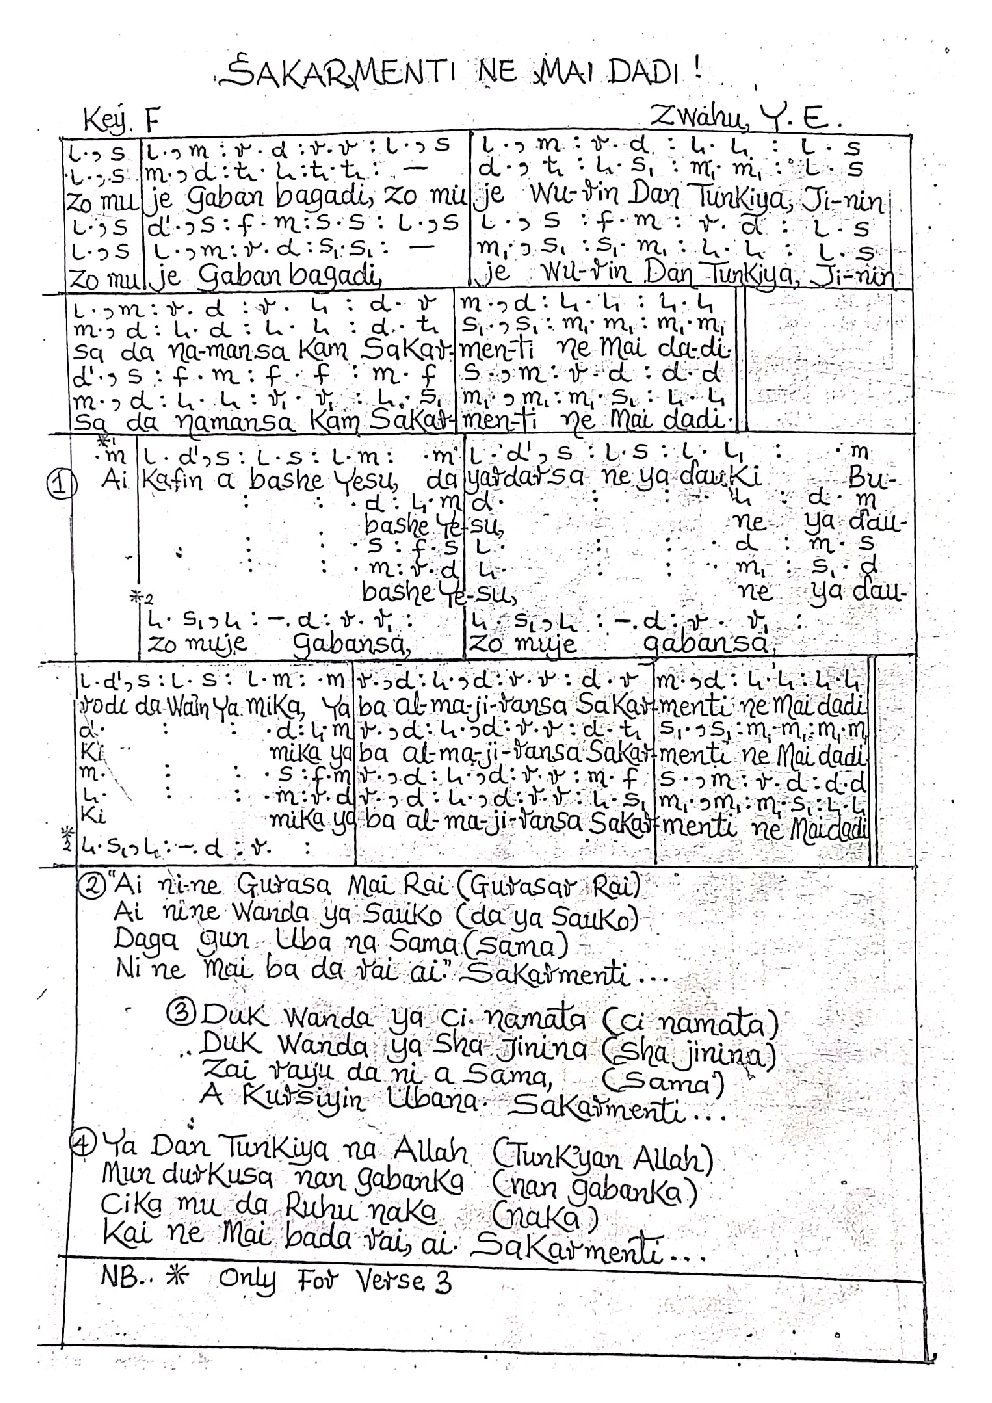 SAKARMENTI NE MAI DADI!
Key. F Zwahu, Y. E.
l.,s l.,m : r. d : r. r : l.,s l.,m : r. d : l₁. l₁ : l. s
l.,s m.,d : t₁. l₁ : t₁. t₁ : — d., t₁ : l₁. s₁ : m₁. m₁ : l. s
Zo mu je Gaban bagadi, Zo mu je Wu-rin Dan Tunkiya, Ji-nin
l.,s d'.,s : f. m : s. s : l.,s l.,s : f. m : r. d : l. s
l.,s l.,m : r. d : s₁. s₁ : — m₁.,s₁ : s₁. m₁ : l₁. l₁ : l. s
Zo mu je Gaban bagadi, je Wu-rin Dan Tunkiya, Ji-nin
l.,m : r. d : r. l₁ : d. r m.,d : l₁. l₁ : l₁. l₁
m.,d : l₁. d : l₁. l₁ : d. t₁ s₁.,s₁ : m₁. m₁ : m₁. m₁
Sa da na-mansa Kam Sakar-men-ti ne Mai da-di.
d'., s : f. m : f. f : m. f s.,m : r. d : d. d
m.,d : l₁. l₁ : r₁. r₁ : l₁. s₁ m₁.,m₁ : m₁. s₁ : l₁. l₁
Sa da namansa Kam Sakar-men-ti ne Mai dadi.
*1 .m l. d',s : l. s : l. m : .m l. d',s : l. s : l. l₁ : .m
① Ai Kafin a bashe Yesu, da yardarsa ne ya dauki Bu-
: : . d : l₁. m d. : : l₁ : d. m
bashe Ye-su, ne ya dau-
: : . s : f. s l. : : d : m. s
: : . m : r. d l₁. : : m₁ : s₁. d
bashe Ye-su, ne ya dau-
*2
l₁. s₁,l₁ : –. d : r. r₁ : l₁. s₁,l₁ : –. d : r. r₁ :
Zo muje gabansa, Zo muje gabansa,
l. d',s : l. s : l. m : .m r.,d : l₁.,d : r. r : d. r m.,d : l₁. l₁ : l₁. l₁
rodi da Wain Ya mika, Ya ba al-ma-ji-ransa Sakar-menti ne Mai dadi
d. : : .d : l₁. m r.,d : l₁.,d : r. r : d. t₁ s₁.,s₁ : m₁. m₁ : m₁. m₁
Ki mika ya ba al-ma-ji-ransa Sakar-menti ne Mai dadi
m. : : . s : f. m r.,d : l₁.,d : r. r : m. f s.,m : r. d : d. d
l₁. : : . m : r. d r.,d : l₁.,d : r. r : l₁. s₁ m₁.,m₁ : m₁. s₁ : l₁. l₁
Ki mika ya ba al-ma-ji-ransa Sakar-menti ne Mai dadi
*2 l₁. s₁,l₁ : –. d : r. :
② "Ai ni-ne Gurasa Mai Rai (Gurasar Rai)
Ai nine Wanda ya Sauko (da ya Sauko)
Daga gun Uba na Sama (Sama)
Ni ne Mai ba da rai ai." Sakarmenti...
③ Duk Wanda ya ci namata (ci namata)
Duk Wanda ya Sha jinina (Sha jinina)
Zai rayu da ni a Sama, (Sama)
A Kursiyin Ubana. Sakarmenti...
④ Ya Dan Tunkiya na Allah (Tunk'yan Allah)
Mun durkusa nan gabanka (nan gabanka)
Cika mu da Ruhu naka (naka)
Kai ne Mai bada rai, ai. Sakarmenti...
NB.. * Only For Verse 3